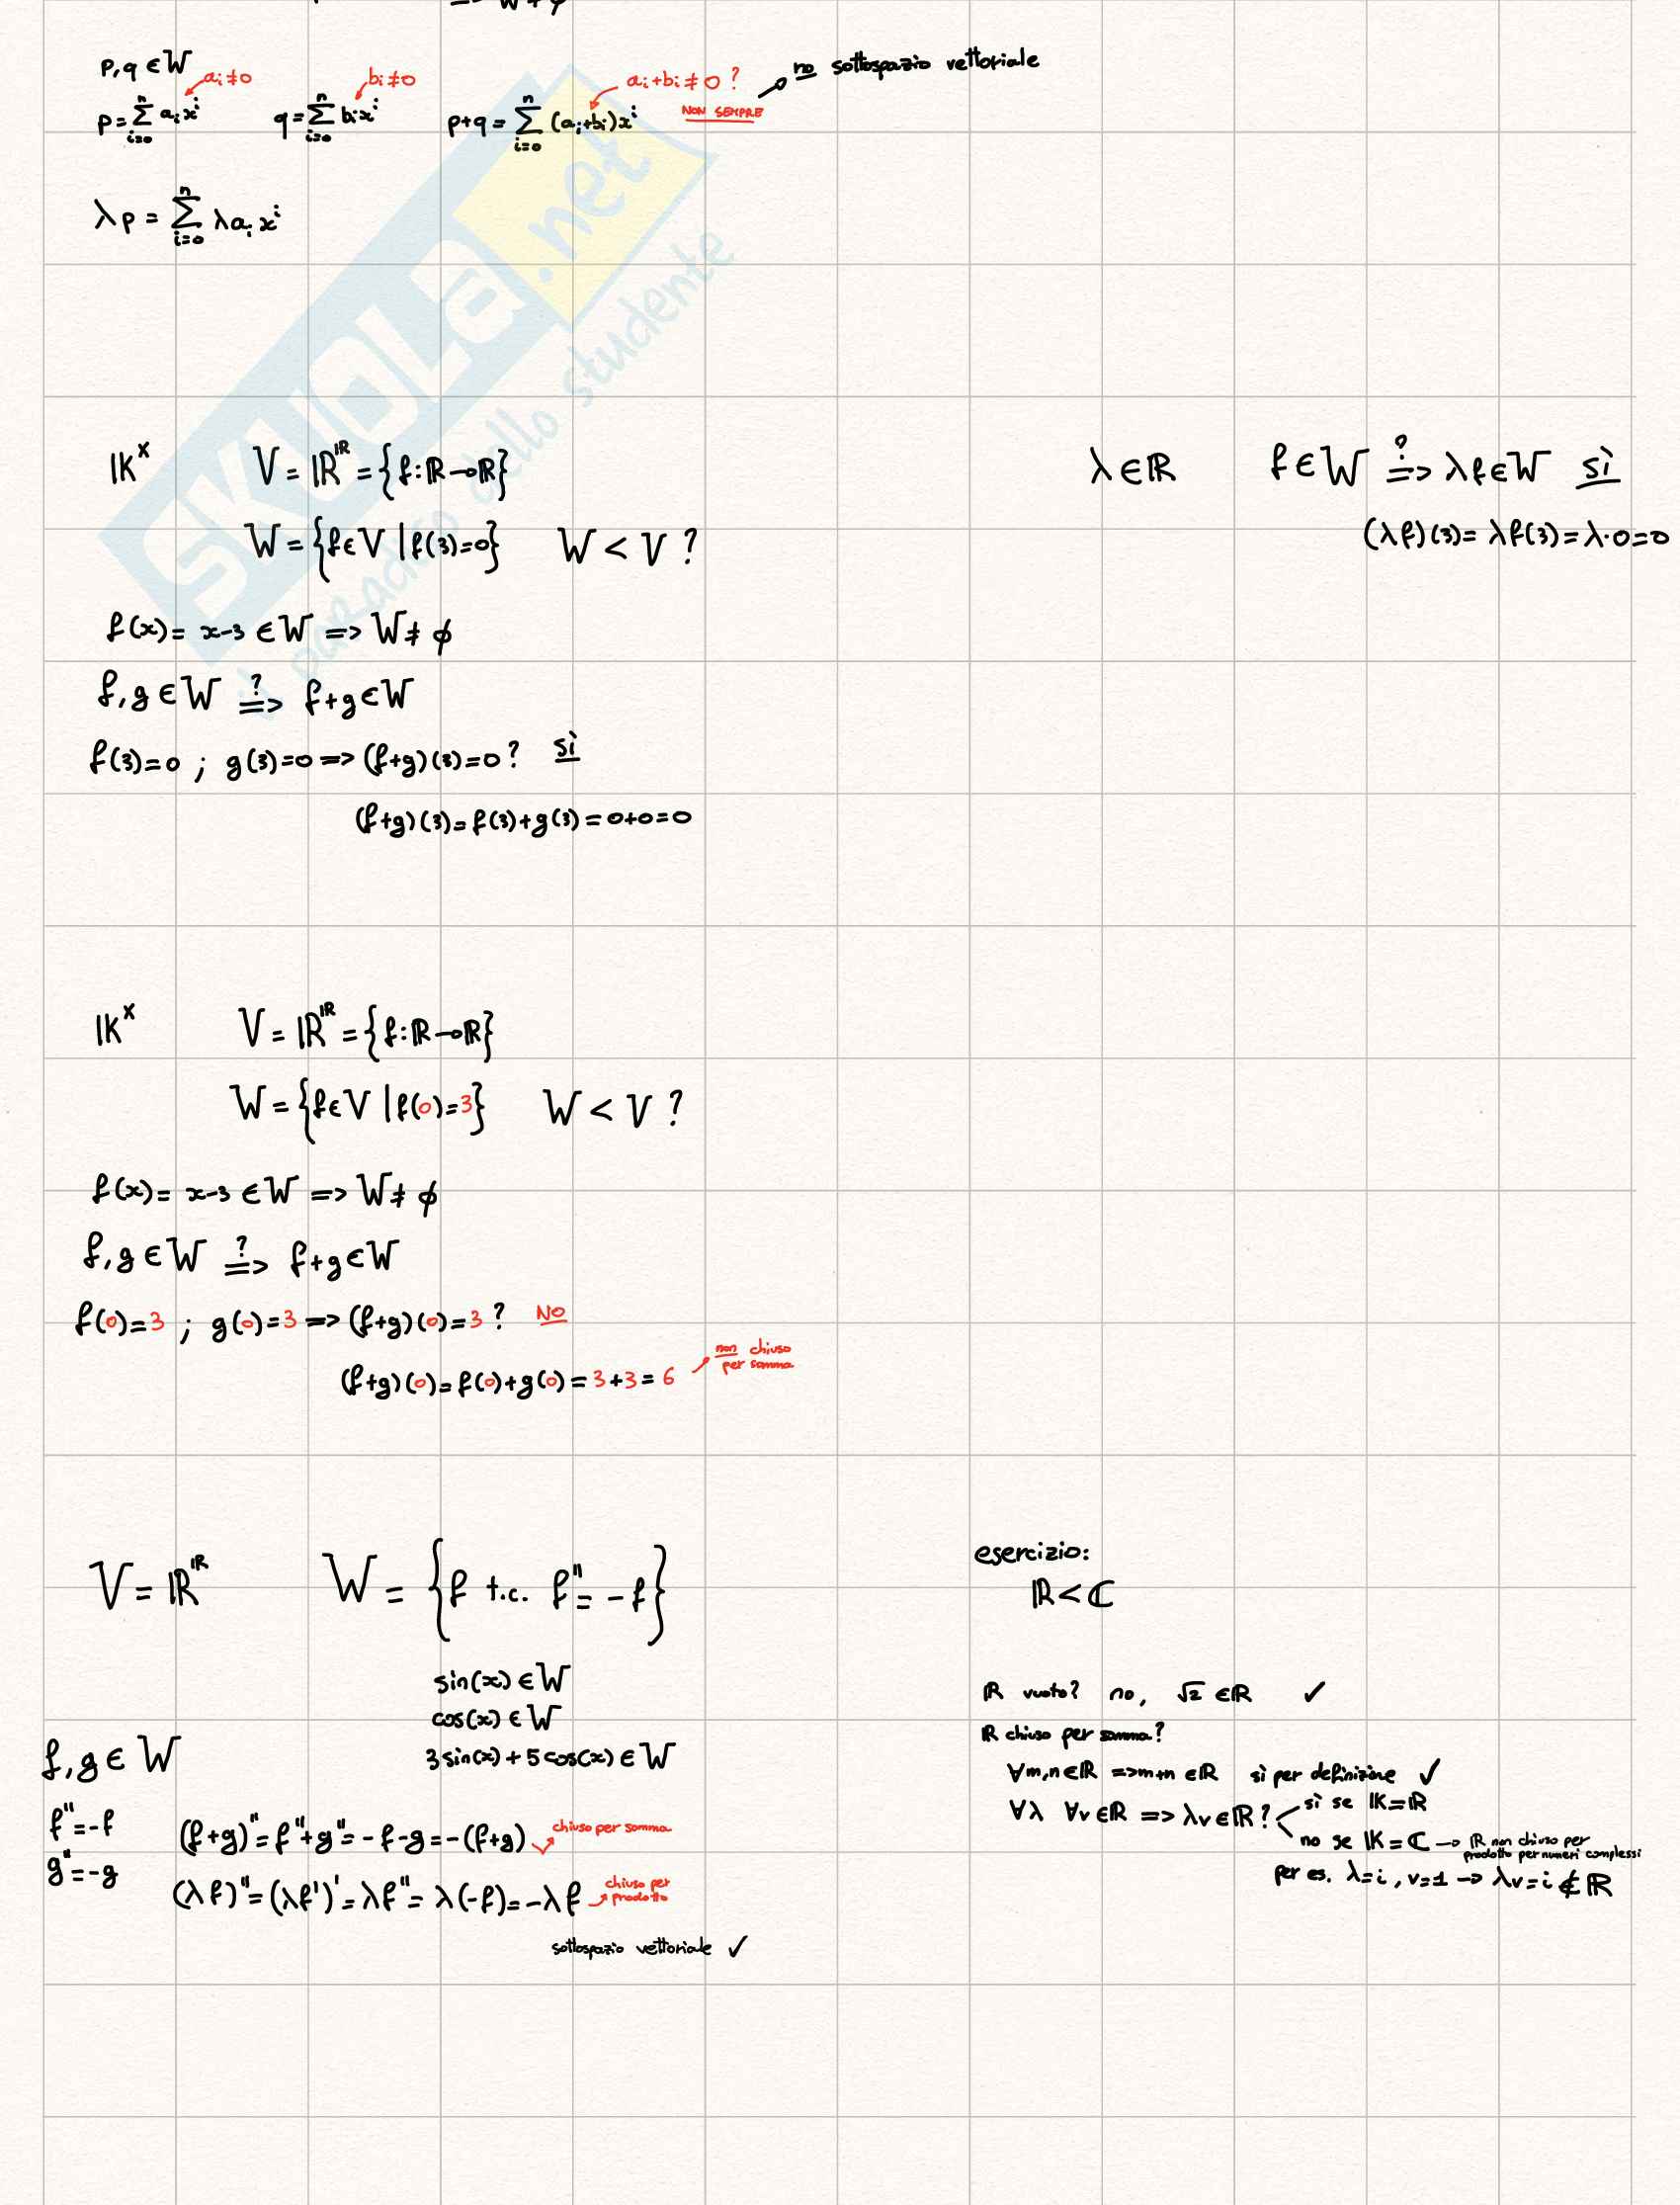 => W ≠ ϕ
p, q ∈ W
p = ∑_{i=0}^{n} a_i x^i   a_i ≠ 0   q = ∑_{i=0}^{n} b_i x^i   b_i ≠ 0   p+q = ∑_{i=0}^{n} (a_i+b_i)x^i   a_i+b_i ≠ 0 ?   NON SEMPRE   no sottospazio vettoriale
λp = ∑_{i=0}^{n} λa_i x^i
SKUOLa.net
il paradiso dello studente
IK^X   V = IR^IR = {f: IR → IR}
W = {f ∈ V | f(3)=0}   W < V ?
f(x) = x-3 ∈ W => W ≠ ϕ
f, g ∈ W ?=> f+g ∈ W
f(3)=0 ; g(3)=0 => (f+g)(3)=0 ?   sì
(f+g)(3) = f(3)+g(3) = 0+0=0
λ ∈ IR   f ∈ W ?=> λf ∈ W   sì
(λf)(3) = λf(3) = λ·0=0
IK^X   V = IR^IR = {f: IR → IR}
W = {f ∈ V | f(0)=3}   W < V ?
f(x) = x-3 ∈ W => W ≠ ϕ
f, g ∈ W ?=> f+g ∈ W
f(0)=3 ; g(0)=3 => (f+g)(0)=3 ?   NO
(f+g)(0) = f(0)+g(0) = 3+3 = 6   non chiuso
per somma
V = IR^IR   W = {f t.c. f'' = -f}
sin(x) ∈ W
cos(x) ∈ W
3 sin(x) + 5 cos(x) ∈ W
f, g ∈ W
f'' = -f
g'' = -g
(f+g)'' = f''+g'' = -f-g = -(f+g)   chiuso per somma
(λf)'' = (λf')' = λf'' = λ(-f) = -λf   chiuso per
prodotto
sottospazio vettoriale ✓
esercizio:
IR < ℂ
IR vuoto? no, √2 ∈ IR ✓
IR chiuso per somma?
∀m,n ∈ IR => m+n ∈ IR   sì per definizione ✓
∀λ ∀v ∈ IR => λv ∈ IR ?   sì se IK = IR
no se IK = ℂ → IR non chiuso per
prodotto per numeri complessi
per es. λ=i, v=1 → λv = i ∉ IR